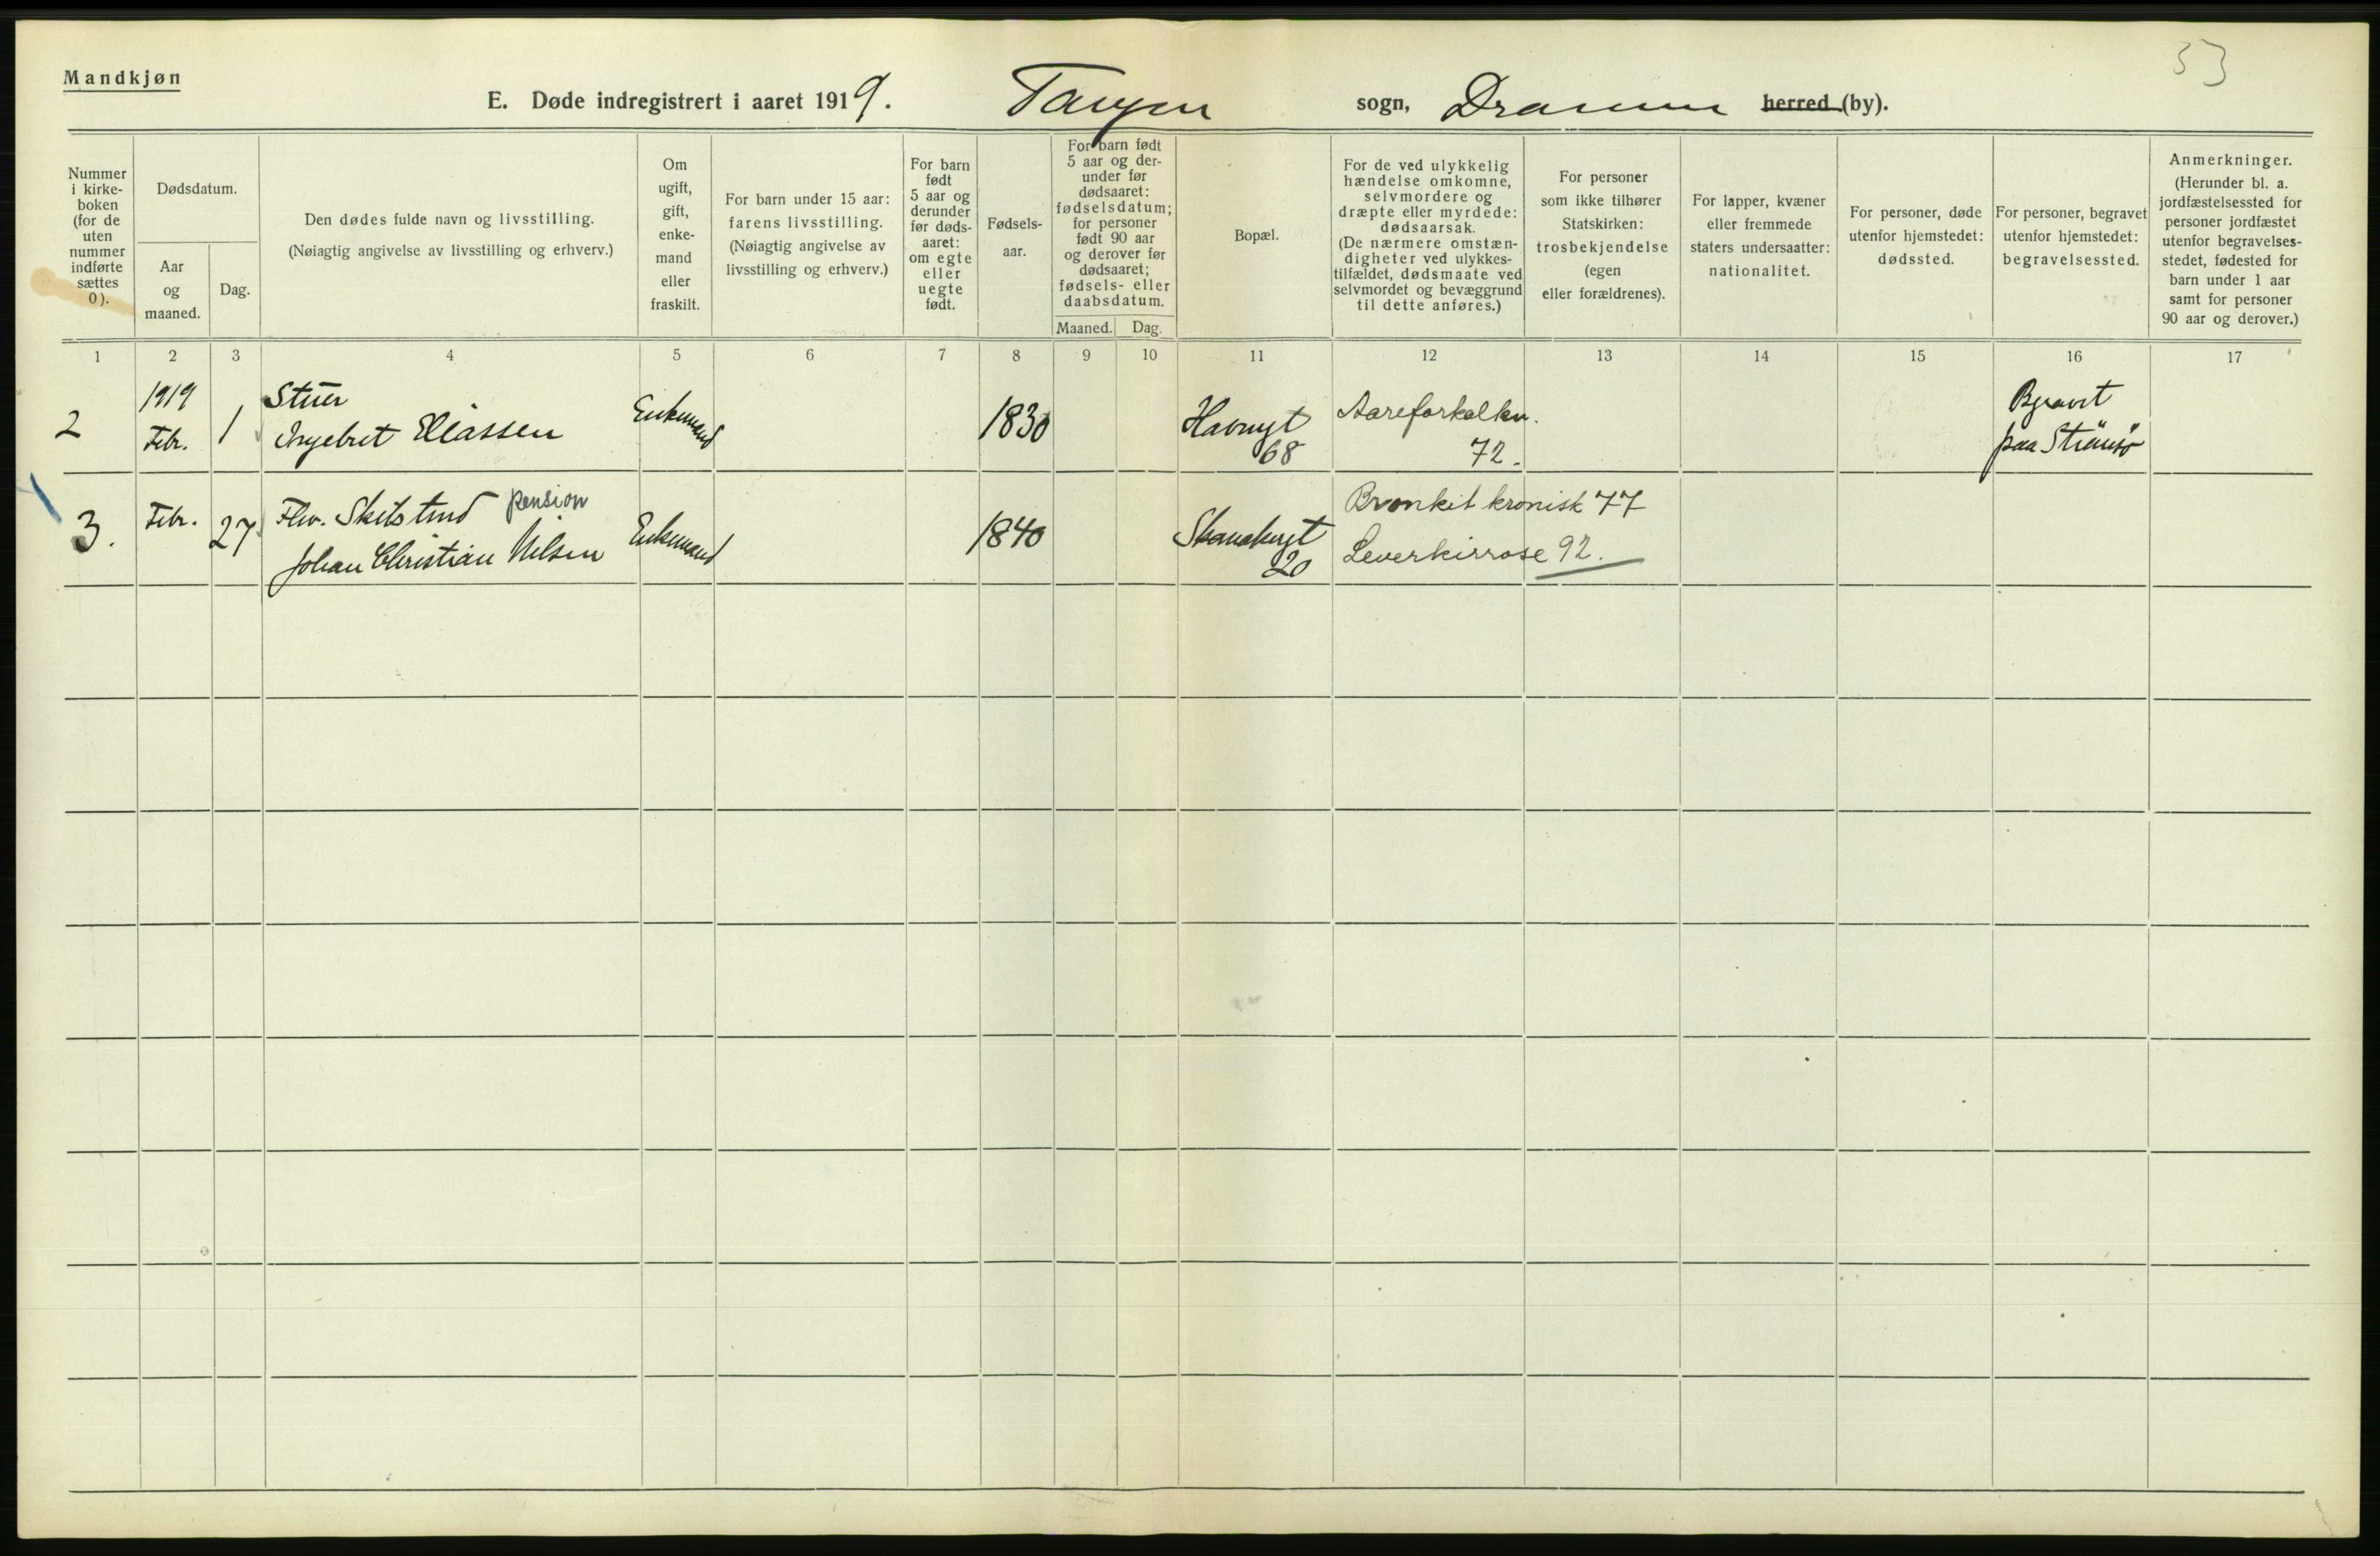 53
Mandkjøn
E. Døde indregistrert i aaret 1919. Tangen sogn, Drammen herred (by).
Nummer
i kirke-
boken
(for de
uten
nummer
indførte
sættes
0).
Dødsdatum.
Aar
og
maaned.
Dag.
Den dødes fulde navn og livsstilling.
(Nøiagtig angivelse av livsstilling og erhverv.)
Om
ugift,
gift,
enke-
mand
eller
fraskilt.
For barn under 15 aar:
farens livsstilling.
(Nøiagtig angivelse av
livsstilling og erhverv.)
For barn
født
5 aar og
derunder
før døds-
aaret:
om egte
eller
uegte
født.
Fødsels-
aar.
For barn født
5 aar og der-
under før
dødsaaret:
fødselsdatum;
for personer
født 90 aar
og derover før
dødsaaret;
fødsels- eller
daabsdatum.
Maaned. Dag.
Bopæl.
For de ved ulykkelig
hændelse omkomne,
selvmordere og
dræpte eller myrdede:
dødsaarsak.
(De nærmere omstæn-
digheter ved ulykkes-
tilfældet, dødsmaate ved
selvmordet og bevæggrund
til dette anføres.)
For personer
som ikke tilhører
Statskirken:
trosbekjendelse
(egen
eller forældrenes).
For lapper, kvæner
eller fremmede
staters undersaatter:
nationalitet.
For personer, døde
utenfor hjemstedet:
dødssted.
For personer, begravet
utenfor hjemstedet:
begravelsessted.
Anmerkninger.
(Herunder bl. a.
jordfæstelsessted for
personer jordfæstet
utenfor begravelses-
stedet, fødested for
barn under 1 aar
samt for personer
90 aar og derover.)
1 2 3 4 5 6 7 8 9 10 11 12 13 14 15 16 17
2
1919
Febr.
1
Stuer
Ingebret Eliassen
Enkemand
1830
Havnegt
68
Aareforkalkn.
72.
Begravet
paa Strömsö
3.
Febr.
27
Fhv. Skibstmd pension
Johan Christian Nilsen
Enkemand
1840
20
Bronkit kronisk 77
Leverkirrose 92.